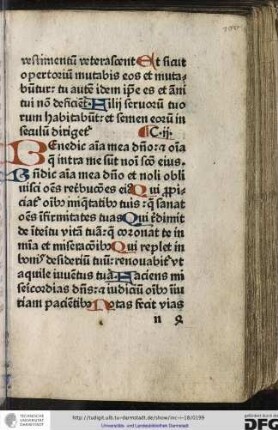 vestimentū veterascent Et sicut
opertoriū mutabis eos et muta-
būtur: tu autē idem ip̄e es et āni
tui nō deficiēt. Filij seruorū tuo
rum habitabūt: et semen eorū in
seculū dirigetʳ C. ij.
BEnedic aīa mea dn̄o: ⁊ oīa
q̄ intra me sūt noī scō eius.
Bn̄dic aīa mea dn̄o et noli obli
uisci oēs retʳbucōes eiꝰ Qui ꝓpi-
ciatʳ oīb iniq̄tatib tuis: q̄ sanat
oēs īfirmitates tuas Qui redimit
de īteitu vitā tuā: q̄ coronat te in
mīa et miseracōib Qui replet in
bonis desideriū tuū: renouabitʳ vt
aquile iuuentus tua. Faciens mi
sericordias dn̄s: ⁊ iudiciū oīb iniu
riam paciētib Notas fecit vias
n
http://tudigit.ulb.tu-darmstadt.de/show/inc-i-18/0199
Universitäts- und Landesbibliothek Darmstadt